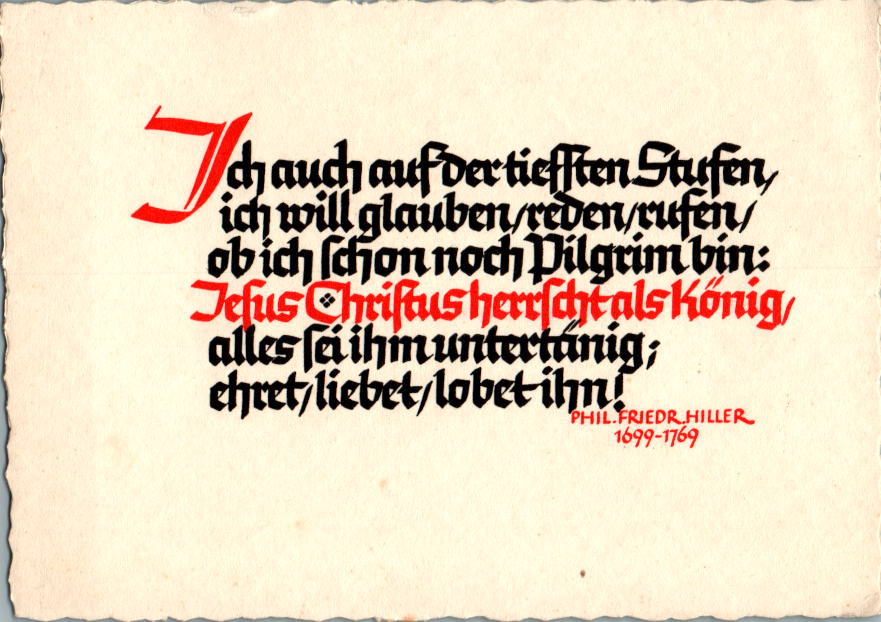 Ich auch auf der tieffſten Stufen,
ich will glauben/reden/rufen/
ob ich ſchon noch Pilgrim bin:
Jeſus Chriſtus herrſcht als König/
alles ſei ihm untertänig;
ehret/liebet/lobet ihn!
PHIL. FRIEDR. HILLER
1699-1769